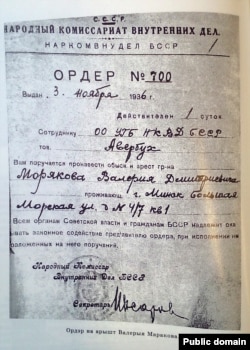 С.С.С.Р.
НАРОДНЫЙ КОМИССАРИАТ ВНУТРЕННИХ ДЕЛ.
НАРКОМВНУДЕЛ БССР
1
ОРДЕР № 700
Выдан 3. ноября 1936 г.
Действителен 1 суток
Сотруднику ОО УГБ НКВД БССР
тов. Авербух
Вам поручается произвести обыск и арест гр-на
Морякова Валерия Дмитриевича
проживающ. г. Минск Большая
Морская ул. д № 4/7 кв 1
Всем органам Советской власти и гражданам БССР надлежит ока
зывать законное содействие предъявителю ордера, при исполнении им
возложенных на него поручений.
Народный Комиссар
Внутренних Дел БССР
Секретарь
Ордэр на арышт Валерыя Маракова
Public domain